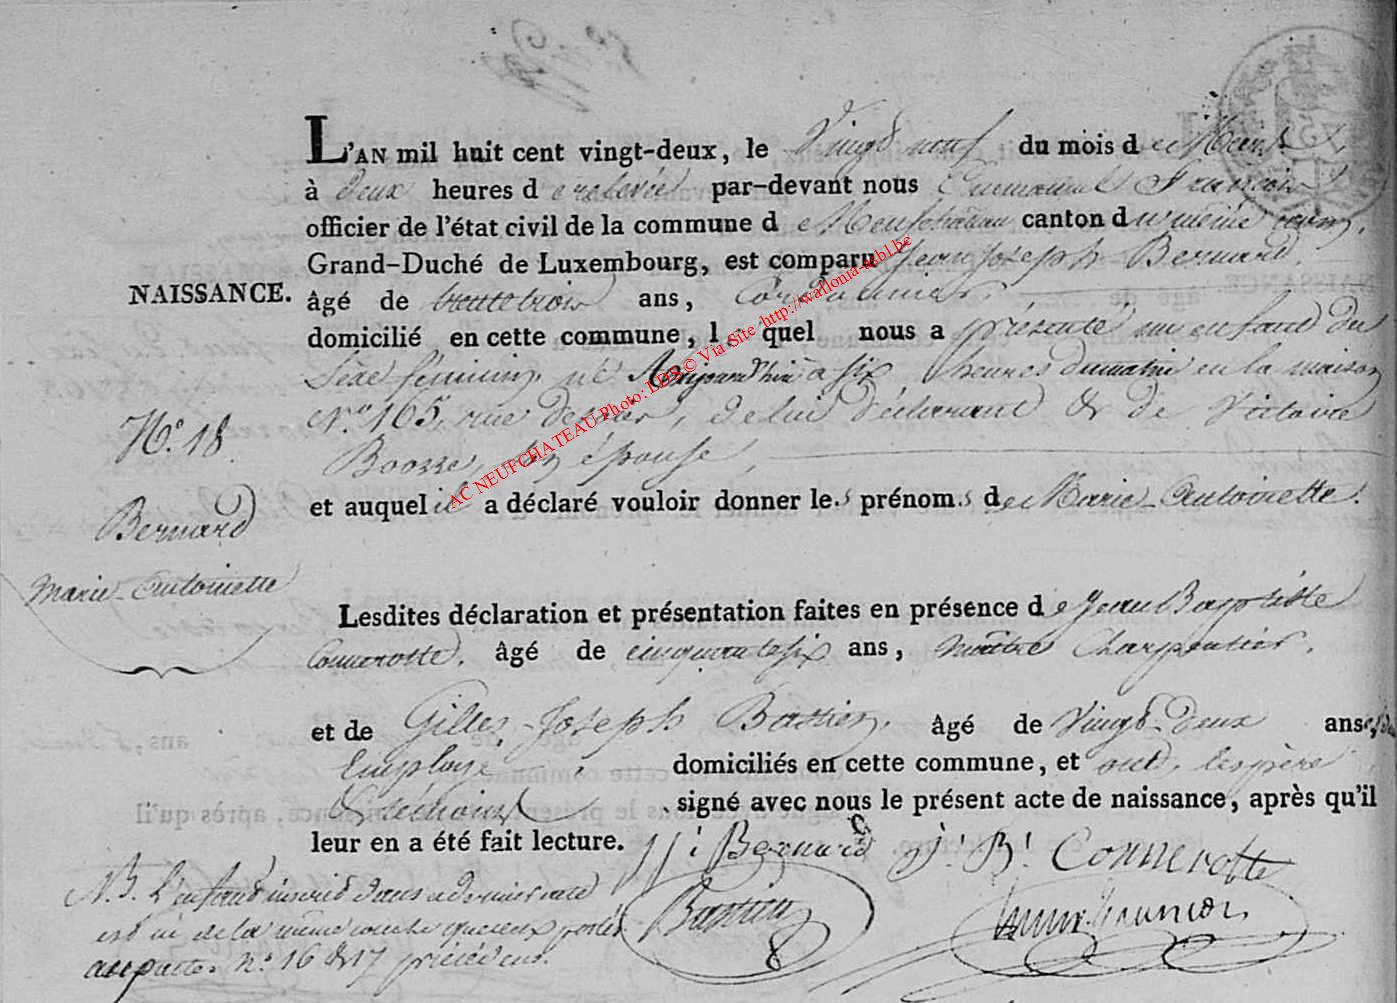 L'AN mil huit cent vingt-deux, le Vingt neuf du mois de Mars
à deux heures de relevée par-devant nous Emmanuel François
officier de l'état civil de la commune de Neufchateau canton du même nom,
Grand-Duché de Luxembourg, est comparu Jean Joseph Bernard,
NAISSANCE. âgé de trentetrois ans, Cordonnier,
domicilié en cette commune, lequel nous a présenté un enfant du
Sexe féminin, né Aujourd'hui à six heures du matin en la maison
N.º 165, rue , de lui déclarant & de Victoire
Nº. 18
épouse,
et auquel il a déclaré vouloir donner les prénoms de Marie-Antoinette.
Bernard
Marie-Antoinette
Lesdites déclaration et présentation faites en présence de Jean Baptiste
Connerotte, âgé de cinquantesix ans, maître Charpentier,
et de Gilles-Joseph Bastien, âgé de Vingt-deux ans,
Employé domiciliés en cette commune, et ont, les père
& témoins signé avec nous le présent acte de naissance, après qu'il
leur en a été fait lecture.
JJ Bernard J. B. Connerotte
N.B. L'enfant inscrit dans ce dernier acte
est né de la même couche que ceux portés
aux actes nº 16 & 17 précédens.
Bastien
AC NEUFCHATEAU Photo: LDB © Via Site http://wallonia-asbl.be